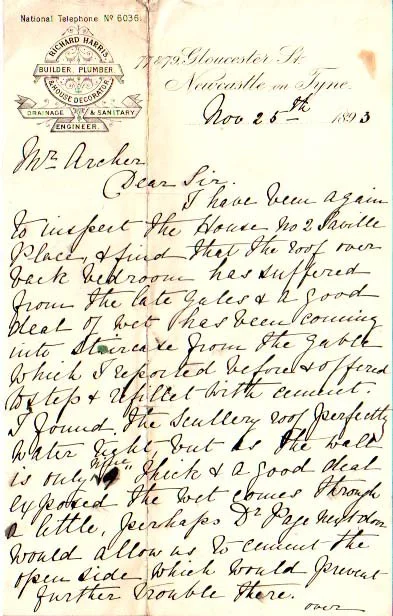 National Telephone No 6036.
RICHARD HARRIS,
BUILDER, PLUMBER,
& HOUSE DECORATOR,
DRAINAGE & SANITARY
ENGINEER.
77 & 79, Gloucester St.
Newcastle on Tyne,
Nov 25th 1893
Mr Archer
Dear Sir.
I have been again
to inspect the House no 2 Saville
Place, & find that the roof over
back bedroom has suffered
from the late gales & a good
deal of wet has been coming
into staircase from the gable
which I reported before & offered
to step & refillet with cement.
I found the Scullery roof perfectly
water tight but as the wall
is only nine thick & a good deal
exposed the wet comes through
a little, perhaps Dr Page next door
would allow us to cement the
open side which would prevent
further trouble there.
over